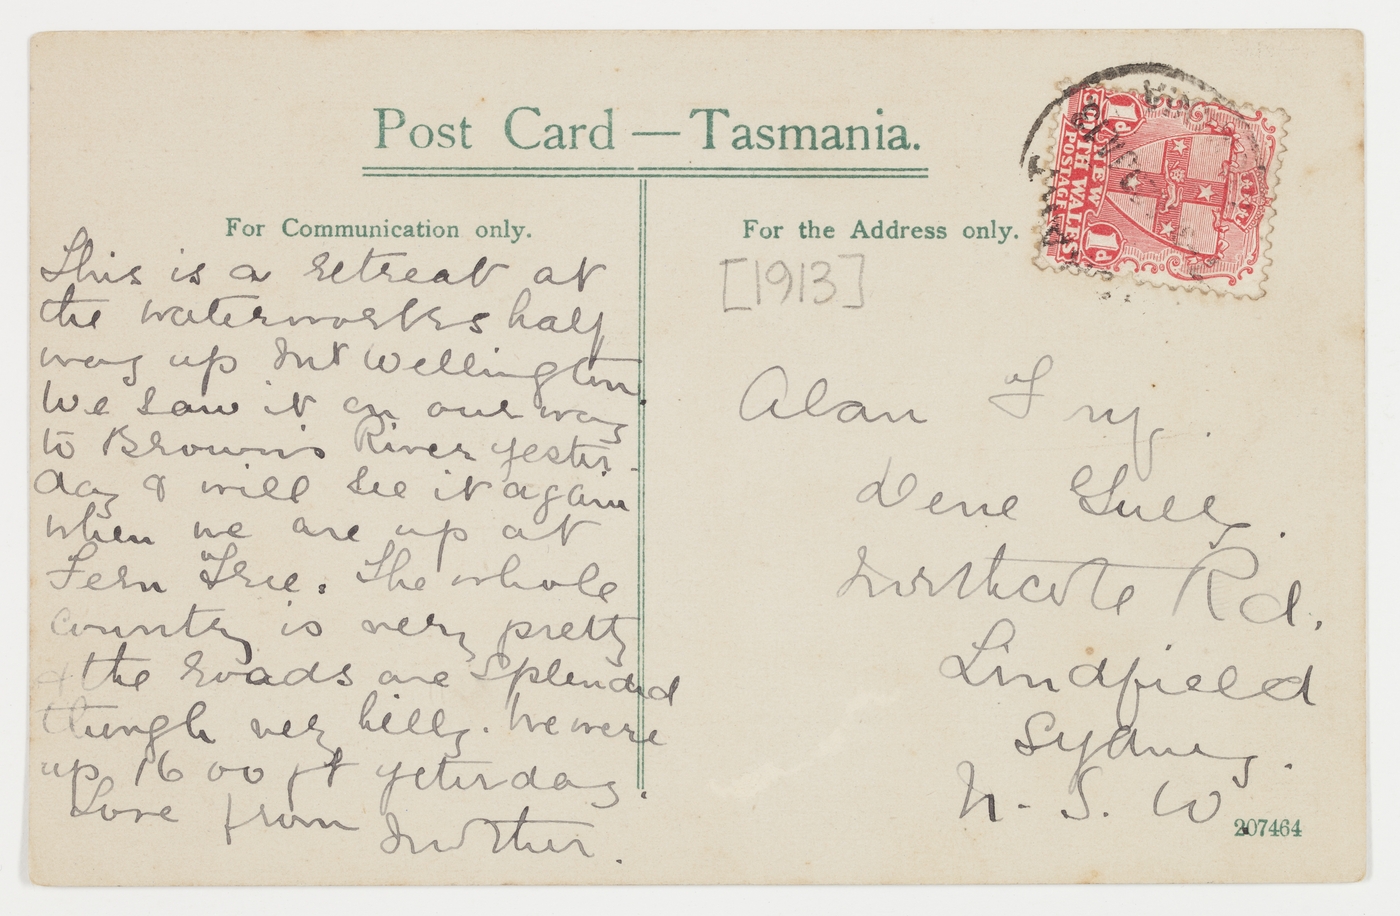 Post Card — Tasmania.
For Communication only.
This is a retreat at
the waterworks half
way up Mt Wellington.
We saw it on our way
to Brown's River yester-
day & will see it again
when we are up at
Fern Tree. The whole
country is very pretty
& the roads are splendid
though very hilly. We were
up 1600 ft yeterday.
Love from Mother.
For the Address only.
[1913]
Alan Fry.
Dene Gully.
Northcote Rd.
Lindfield
Sydney.
N. S. W.
207464
1d
NEW
SOUTH WALES
POSTAGE
1d